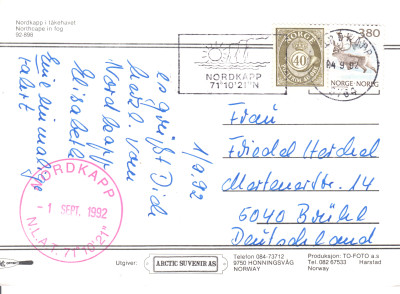 Nordkapp i tåkehavet
Northcape in fog
92-898
1/9.92
es grüßt Dich
herzl. vom
Nordkapp
Elisabeth
Eine einmalige
Fahrt
NORDKAPP
- 1 SEPT. 1992
N.L.A.T. 71°10'21"
NORDKAPP
71°10'21"N
NORGE
40
380
NORGE·NOREG
04.9.92
Frau
Friedel Herchel
Martenerstr. 14
5040 Brühl
Deutschland
Utgiver:
ARCTIC SUVENIR AS
Telefon 084-73712
9750 HONNINGSVÅG
NORWAY
Produksjon: TO-FOTO a.s
Tel. 082 67533 Harstad
Norway